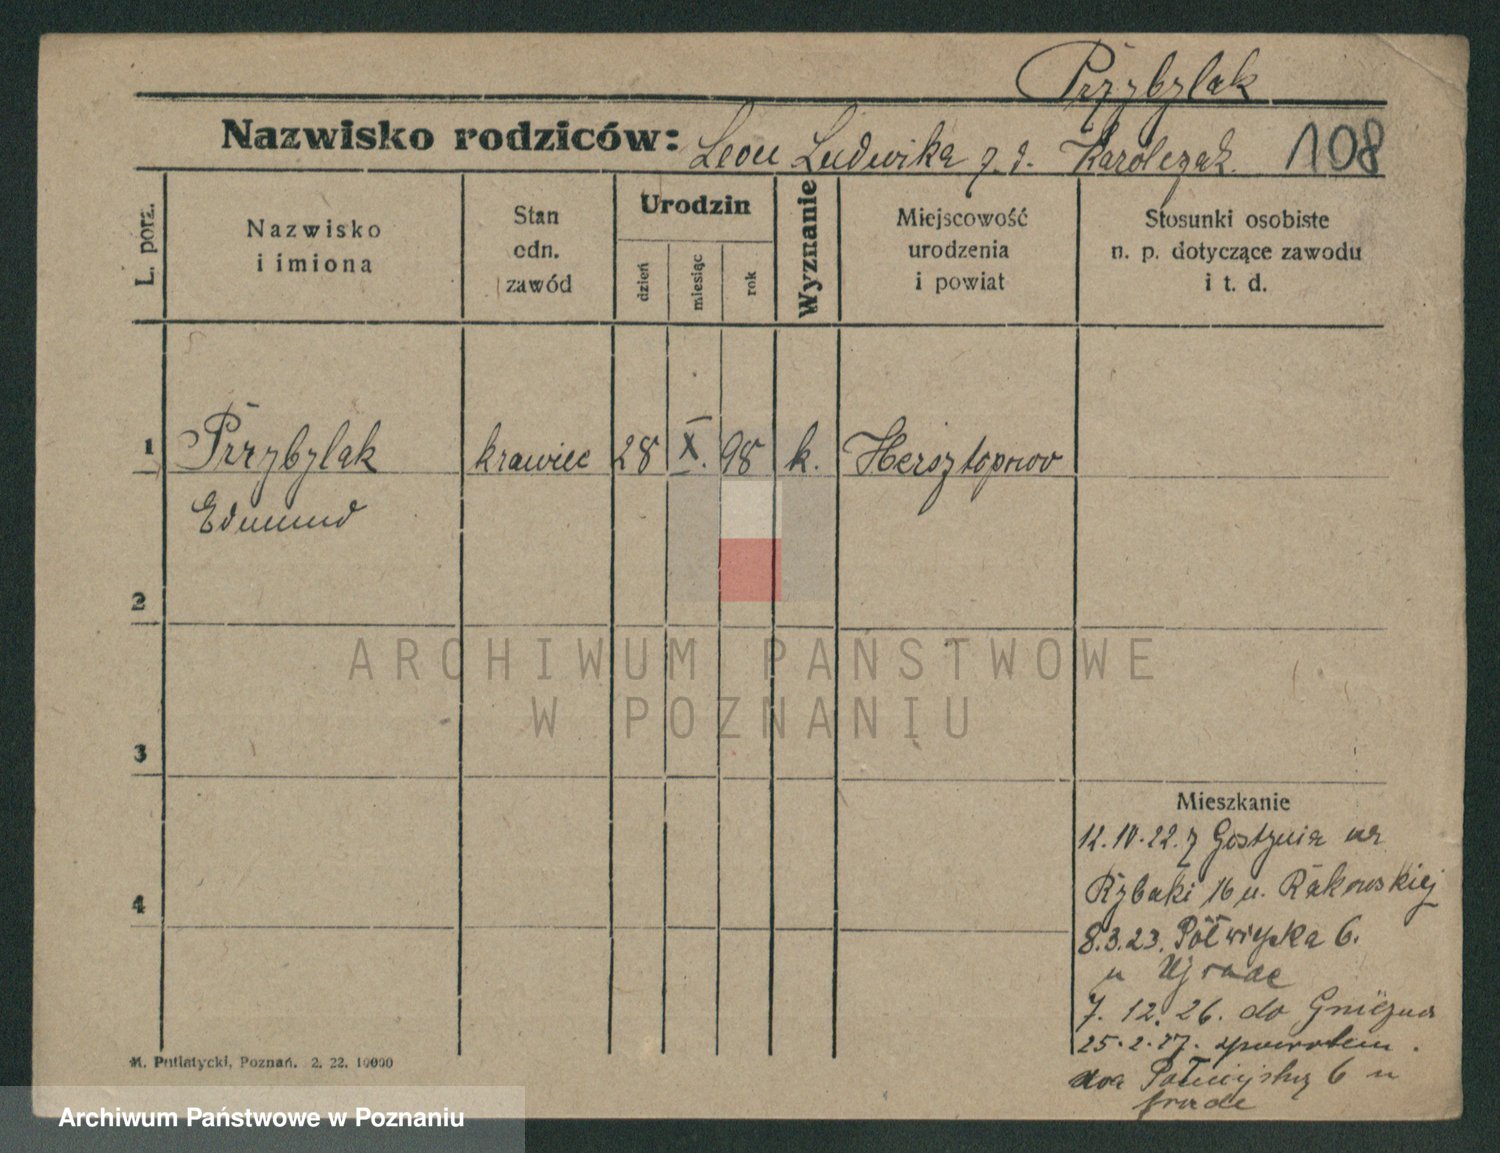 Przybylak
Nazwisko rodziców: Leon Ludwika z d. Karolczak. 108
L. porz.
Nazwisko
i imiona
Stan
odn.
zawód
Urodzin
dzień
miesiąc
rok
Wyznanie
Miejscowość
urodzenia
i powiat
Stosunki osobiste
n. p. dotyczące zawodu
i t. d.
1 Przybylak krawiec 28 X. 98 k. Hersztopowo
Edmund
2
ARCHIWUM PAŃSTWOWE
W POZNANIU
3
Mieszkanie
12.IV.22. z Gostynia na
Rybaki 16 u. Rakowskiej
4
8.3.23. Półwiejska 6.
u
7. 12. 26. do Gniezna
25.2.27. zpowrotem.
na Półwiejską 6 u
M. Putiatycki, Poznań. 2. 22. 10000
Archiwum Państwowe w Poznaniu